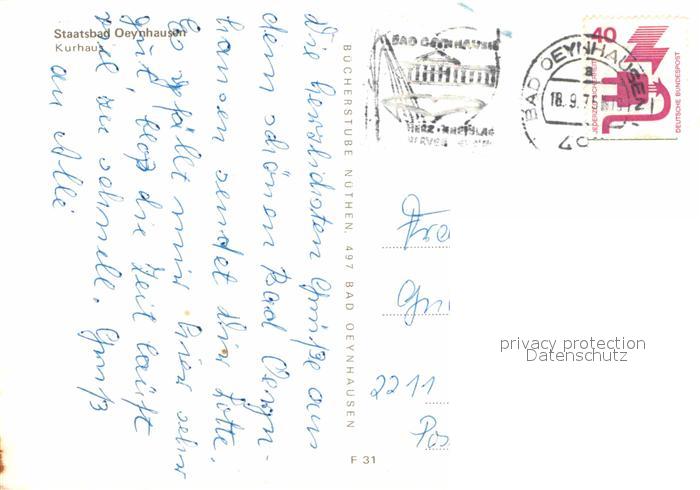 Staatsbad Oeynhausen
Kurhaus
Die herzlichsten Grüße aus
dem schönen Bad Oeyn-
hausen sendet Dir Lotte.
Es gefällt mir hier sehr
gut, bloß die Zeit läuft
viel zu schnell. Gruß
an Alle
BÜCHERSTUBE NÜTHEN, 497 BAD OEYNHAUSEN
F 31
BAD OEYNHAUSEN
HERZ · KREISLAUF
NERVEN
BAD OEYNHAUSEN
18.9.7
40
JEDERZEIT SICHERHEIT
DEUTSCHE BUNDESPOST
2211
privacy protection
Datenschutz